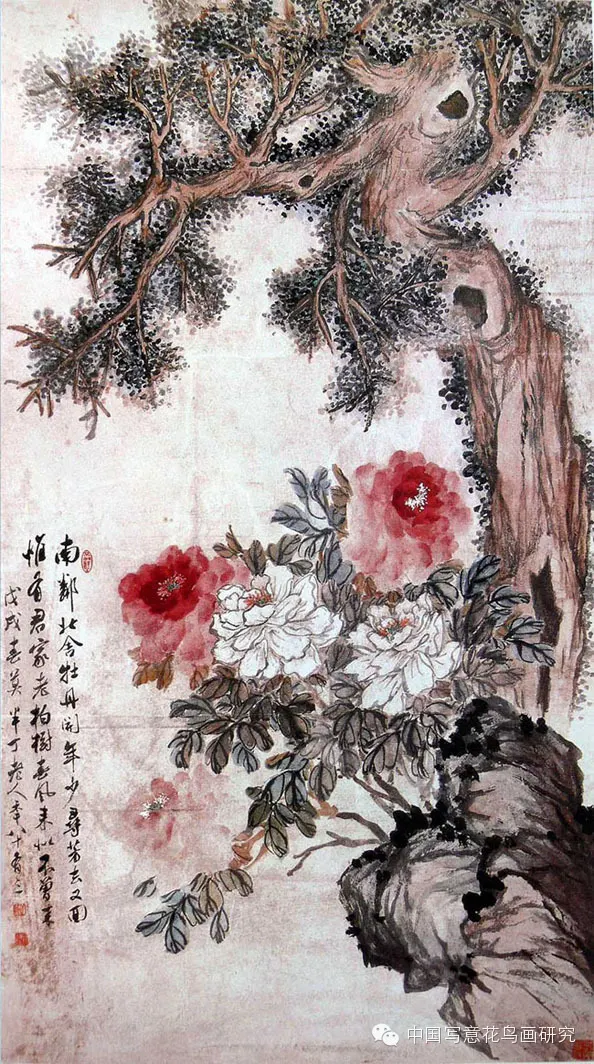 南鄰北舍牡丹開年少尋芳去又回
惟有君家老柏樹春風來似不曾來
戊戌春莫半丁老人年八十有三
中国写意花鸟画研究